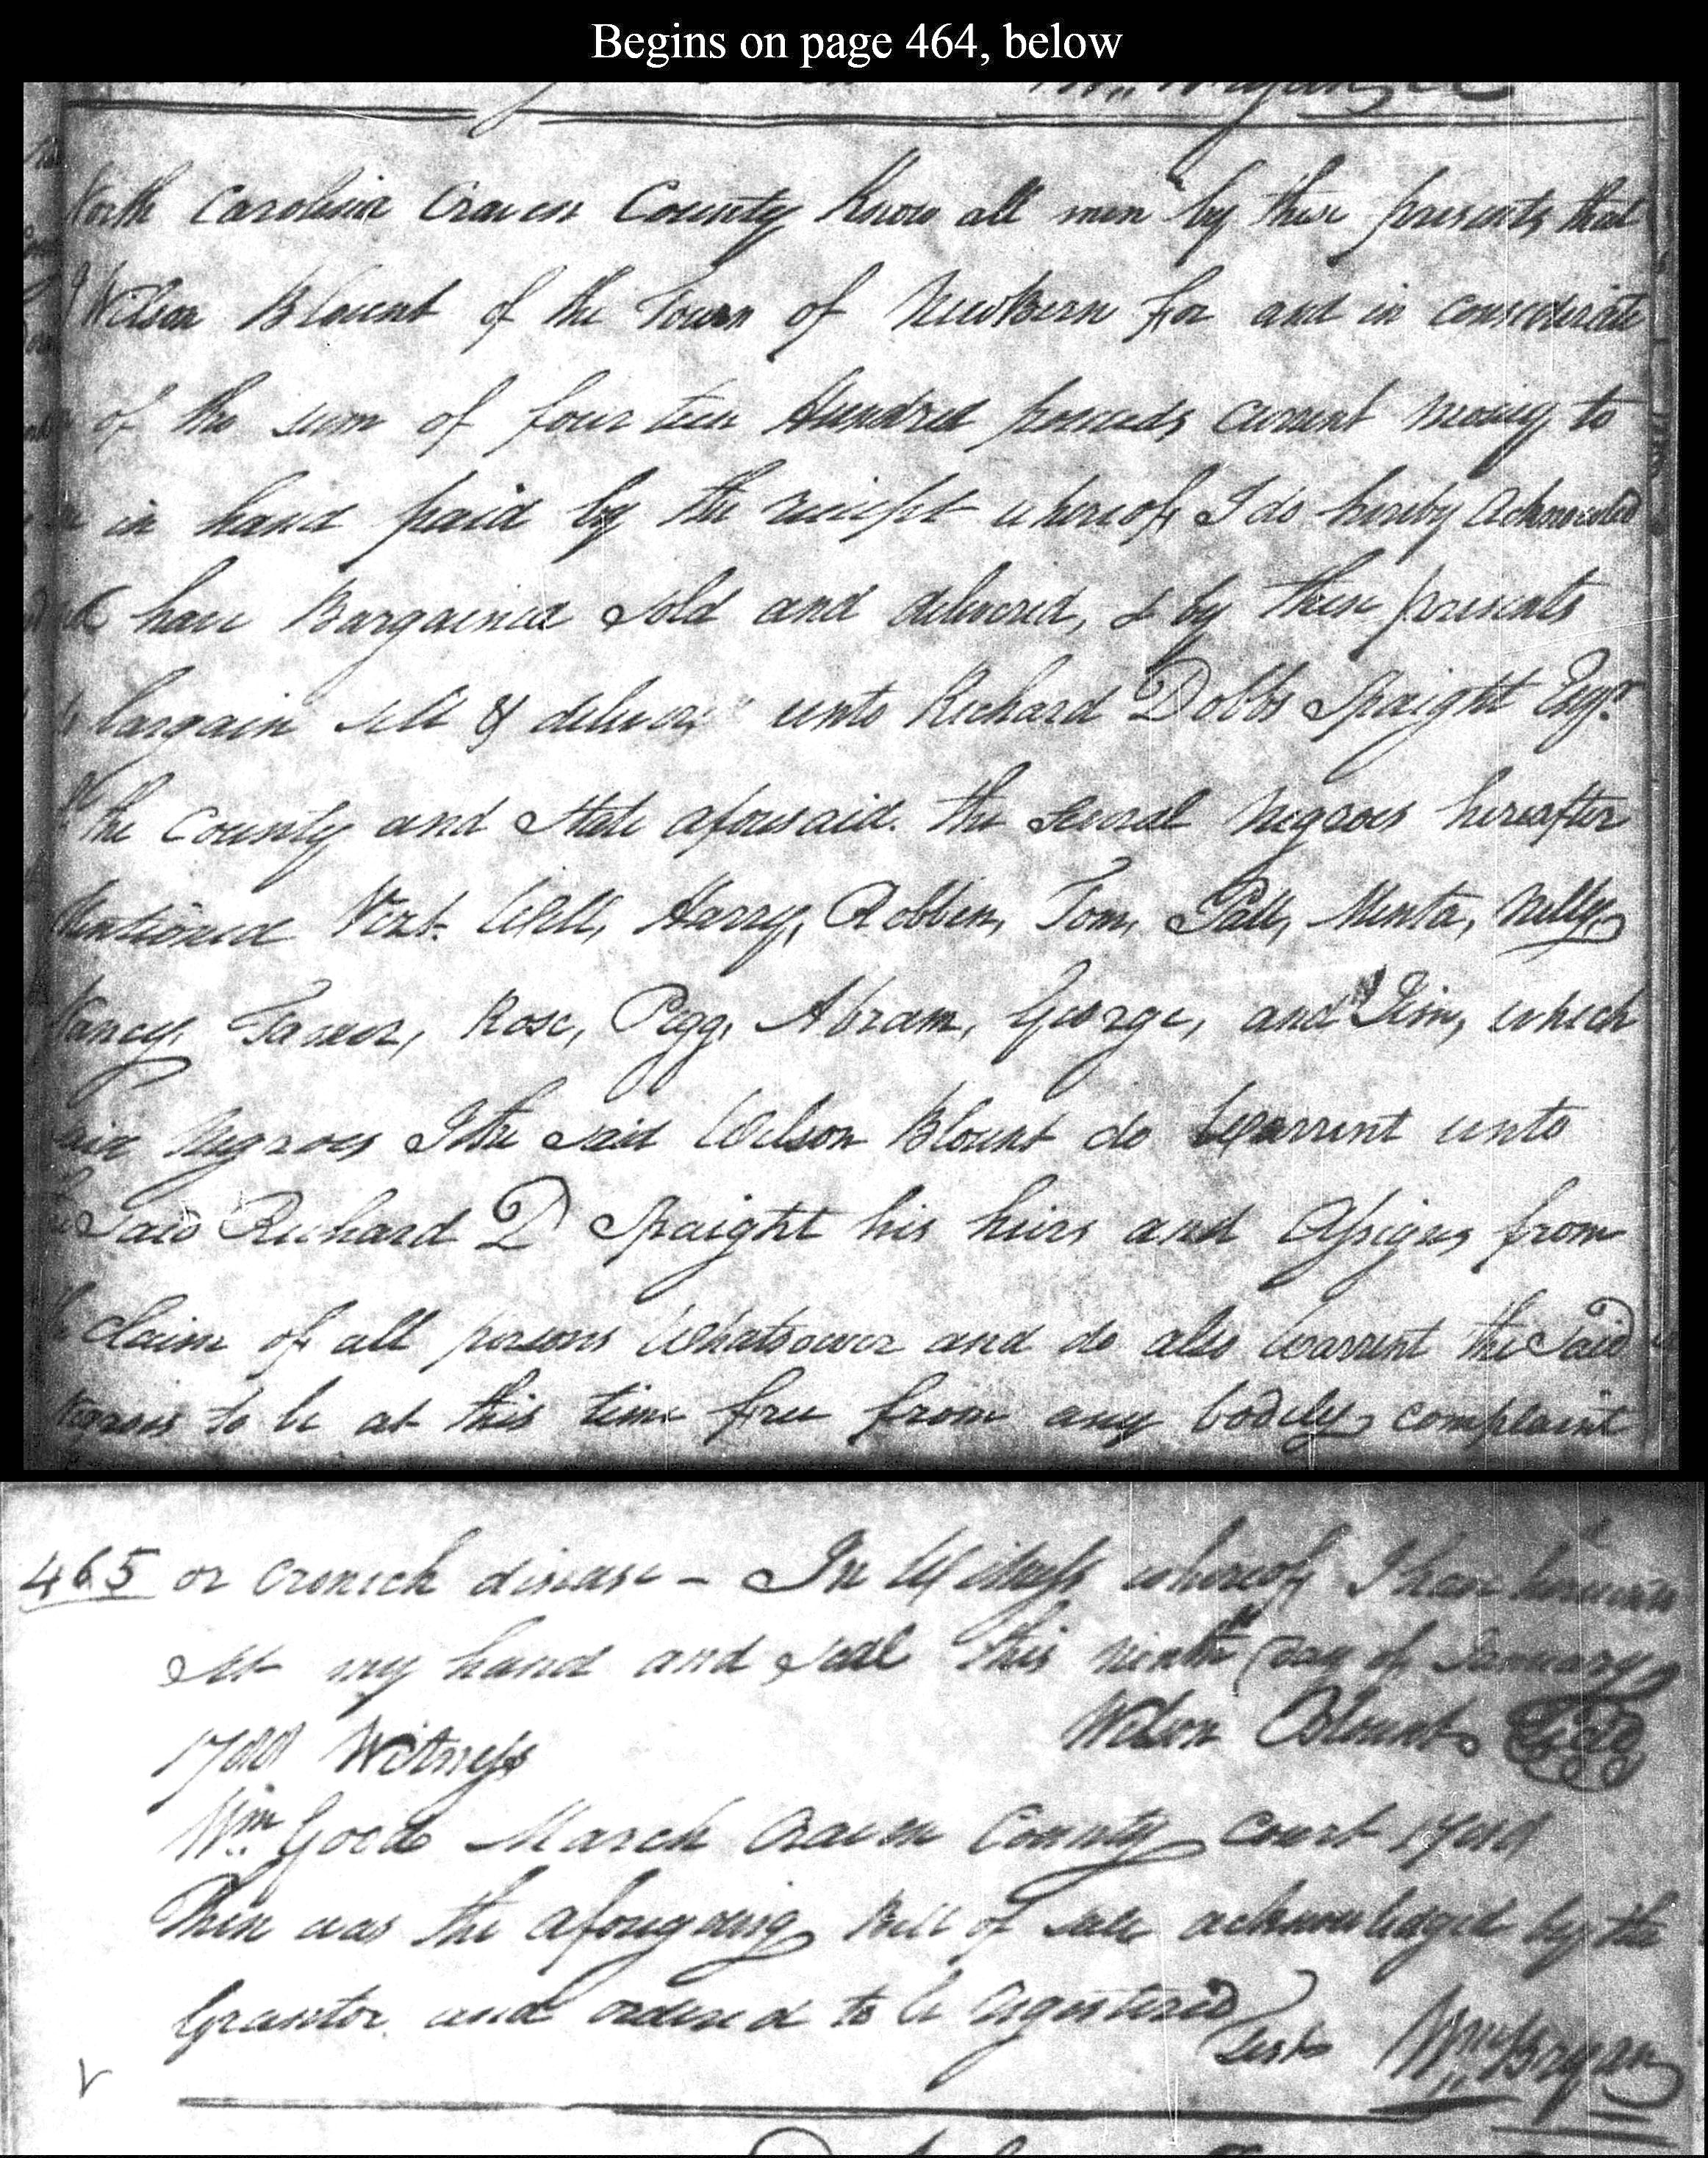 Begins on page 464, below
North Carolina Craven County Know all men by these presents that
I Wilson Blount of the Town of NewBern for and in considerate
of the sum of four teen Hundred pounds current money to
in hand paid by the reciept whereof I do hereby Acknowled
have Bargained Sold and delivered, & by these presents
bargain sell & deliver unto Richard Dobbs Spaight Esqr.
the County and State aforesaid. the Several Negroes hereafter
Mentioned Vizt. Will, Harry, Robbin, Tom, Pall, Minta, Nelly,
Nancy, Rose, Pegg, Abram, George, and Jim, which
said Negroes I the said Wilson Blount do Warrent unto
Said Richard D Spaight his heirs and Assigns from
claim of all persons Whatsoever and do also warrent the Said
to be at this time free from any bodily complaint
465 or cronick disease - In Witness whereof I have hereunto
Set my hand and seal this ninth Day of January
1788 Witness Wilson Blount Seal
Wm. Good March Craven County Court 1788
Then was the aforegoing Bill of sale acknowledged by the
Grantor and ordered to be registered
Test Wm Bryan